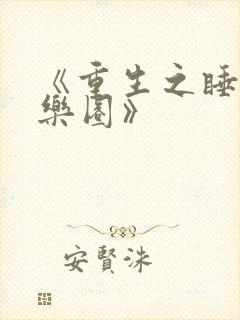 《重生之睡
樂園》
安賢洙